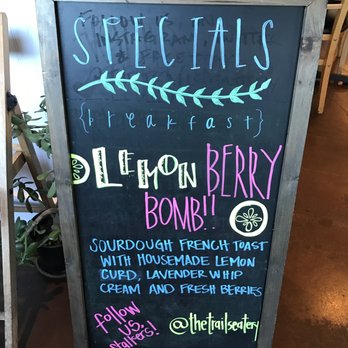 SPECIALS
{breakfast}
LEMON BERRY
BOMB!!
SOURDOUGH FRENCH TOAST
WITH HOUSEMADE LEMON
CURD, LAVENDER WHIP
CREAM AND FRESH BERRIES
follow
us,
stalkers!
@thetrailseatery